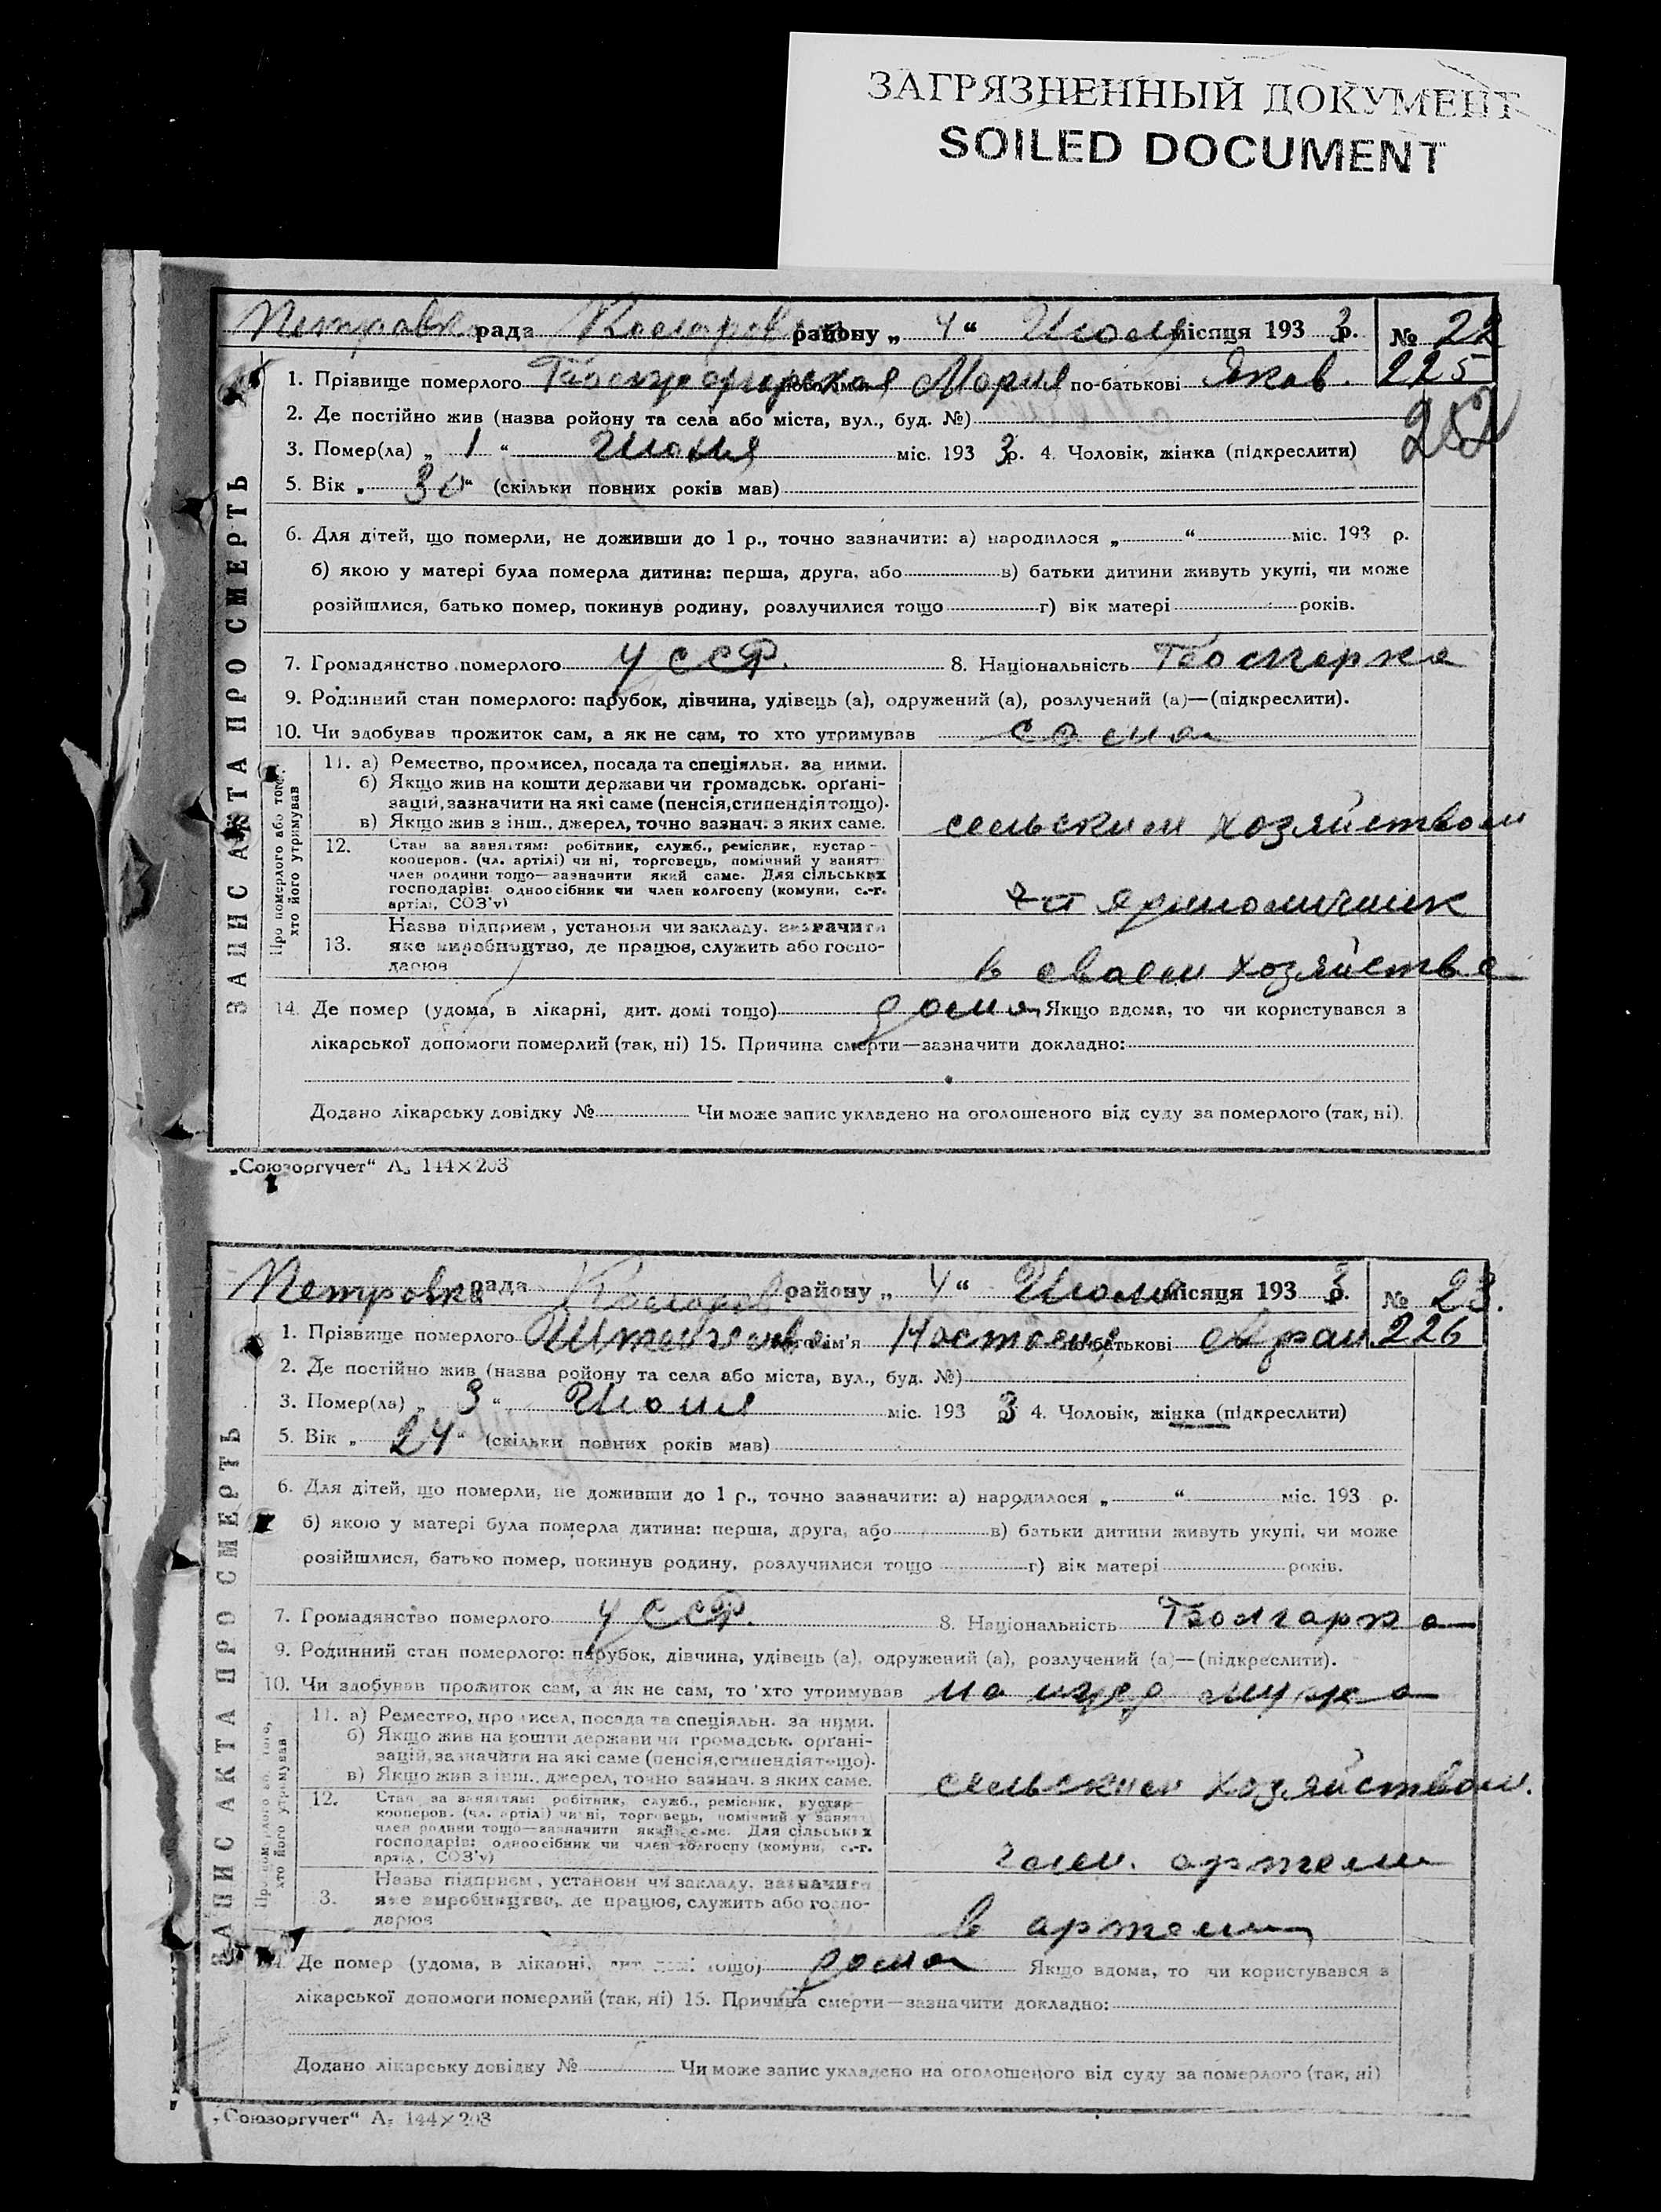 ЗАГРЯЗНЕННЫЙ ДОКУМЕНТ
SOILED DOCUMENT
рада району „ 4 “ місяця 193 3 р. № 22
1. Прізвище померлого Мария по-батькові Яков. 225
2. Де постійно жив (назва ройону та села або міста, вул., буд. №)
252
3. Помер(ла) „ 1 “ міс. 193 3 р. 4. Чоловік, жінка (підкреслити)
5. Вік „ 30 “ (скільки повних років мав)
6. Для дітей, що померли, не доживши до 1 р., точно зазначити: а) народилося „ “ міс. 193 р.
б) якою у матері була померла дитина: перша, друга, або в) батьки дитини живуть укупі, чи може
розійшлися, батько помер, покинув родину, розлучилися тощо г) вік матері років.
7. Громадянство померлого УССР. 8. Національність Болгарка
9. Родинний стан померлого: парубок, дівчина, удівець (а), одружений (а), розлучений (а)—(підкреслити).
10. Чи здобував прожиток сам, а як не сам, то хто утримував сама
11. а) Ремество, промисел, посада та спеціяльн. за ними.
б) Якщо жив на кошти держави чи громадськ. орґані-
зацій, зазначити на які саме (пенсія, стипендія тощо).
в) Якщо жив з інш., джерел, точно зазнач. з яких саме.
сельским хозяйством
12. Стан за заняттям: робітник, служб., реміспик, кустар-
кооперов. (чл. артілі) чи ні, торговець, помічний у занятт
член родини тощо—зазначити який саме. Для сільських
господарів: одноосібник чи член колгоспу (комуни, с.-г.
артілі, СОЗ'у)
единоличник
Назва підприєм, установи чи закладу, зазначити
13. яке виробництво, де працює, служить або госпо-
дарює
в своем хозяйстве
14. Де помер (удома, в лікарні, дит. домі тощо) дома Якщо вдома, то чи користувався з
лікарської допомоги померлий (так, ні) 15. Причина смерти—зазначити докладно:
Додано лікарську довідку № Чи може запис укладено на оголошеного від суду за померлого (так, ні).
ЗАПИС АКТА ПРО СМЕРТЬ
Про померлого або того,
хто його утримував
„Союзоргучет“ А₅ 144×203
Петровка рада району „ 4 “ місяця 193 3 р. № 23.
1. Прізвище померлого ім'я по-батькові 226
2. Де постійно жив (назва ройону та села або міста, вул., буд. №)
3. Помер(ла) „ 3 “ міс. 193 3 4. Чоловік, жінка (підкреслити)
5. Вік „ 24 “ (скільки повних років мав)
6. Для дітей, що померли, не доживши до 1 р., точно зазначити: а) народилося „ “ міс. 193 р.
б) якою у матері була померла дитина: перша, друга, або в) батьки дитини живуть укупі, чи може
розійшлися, батько помер, покинув родину, розлучилися тощо г) вік матері років.
7. Громадянство померлого УССР. 8. Національність Болгарка
9. Родинний стан померлого: парубок, дівчина, удівець (а), одружений (а), розлучений (а)—(підкреслити).
10. Чи здобував прожиток сам, а як не сам, то хто утримував на ижд мужа
11. а) Ремество, промисел, посада та спеціяльн. за ними.
б) Якщо жив на кошти держави чи громадськ. орґані-
зацій, зазначити на які саме (пенсія, стипендія тощо).
в) Якщо жив з інш., джерел, точно зазнач. з яких саме.
сельским хозяйством.
12. Стан за заняттям: робітник, служб., ремісник, кустар-
кооперов. (чл. артілі) чи ні, торговець, помічний у занятт
член родини тощо—зазначити який саме. Для сільських
господарів: одноосібник чи член колгоспу (комуни, с.-г.
артіл., СОЗ'у)
член. артели
Назва підприєм, установи чи закладу, зазначити
3. яке виробництво, де працює, служить або госпо-
дарює
в артели
Де помер (удома, в лікарні, дит. домі тощо) дома Якщо вдома, то чи користувався з
лікарської допомоги померлий (так, ні) 15. Причина смерти—зазначити докладно:
Додано лікарську довідку № Чи може запис укладено на оголошеного від суду за померлого (так, ні)
ЗАПИС АКТА ПРО СМЕРТЬ
хто його утримував
„Союзоргучет“ А₅ 144×203